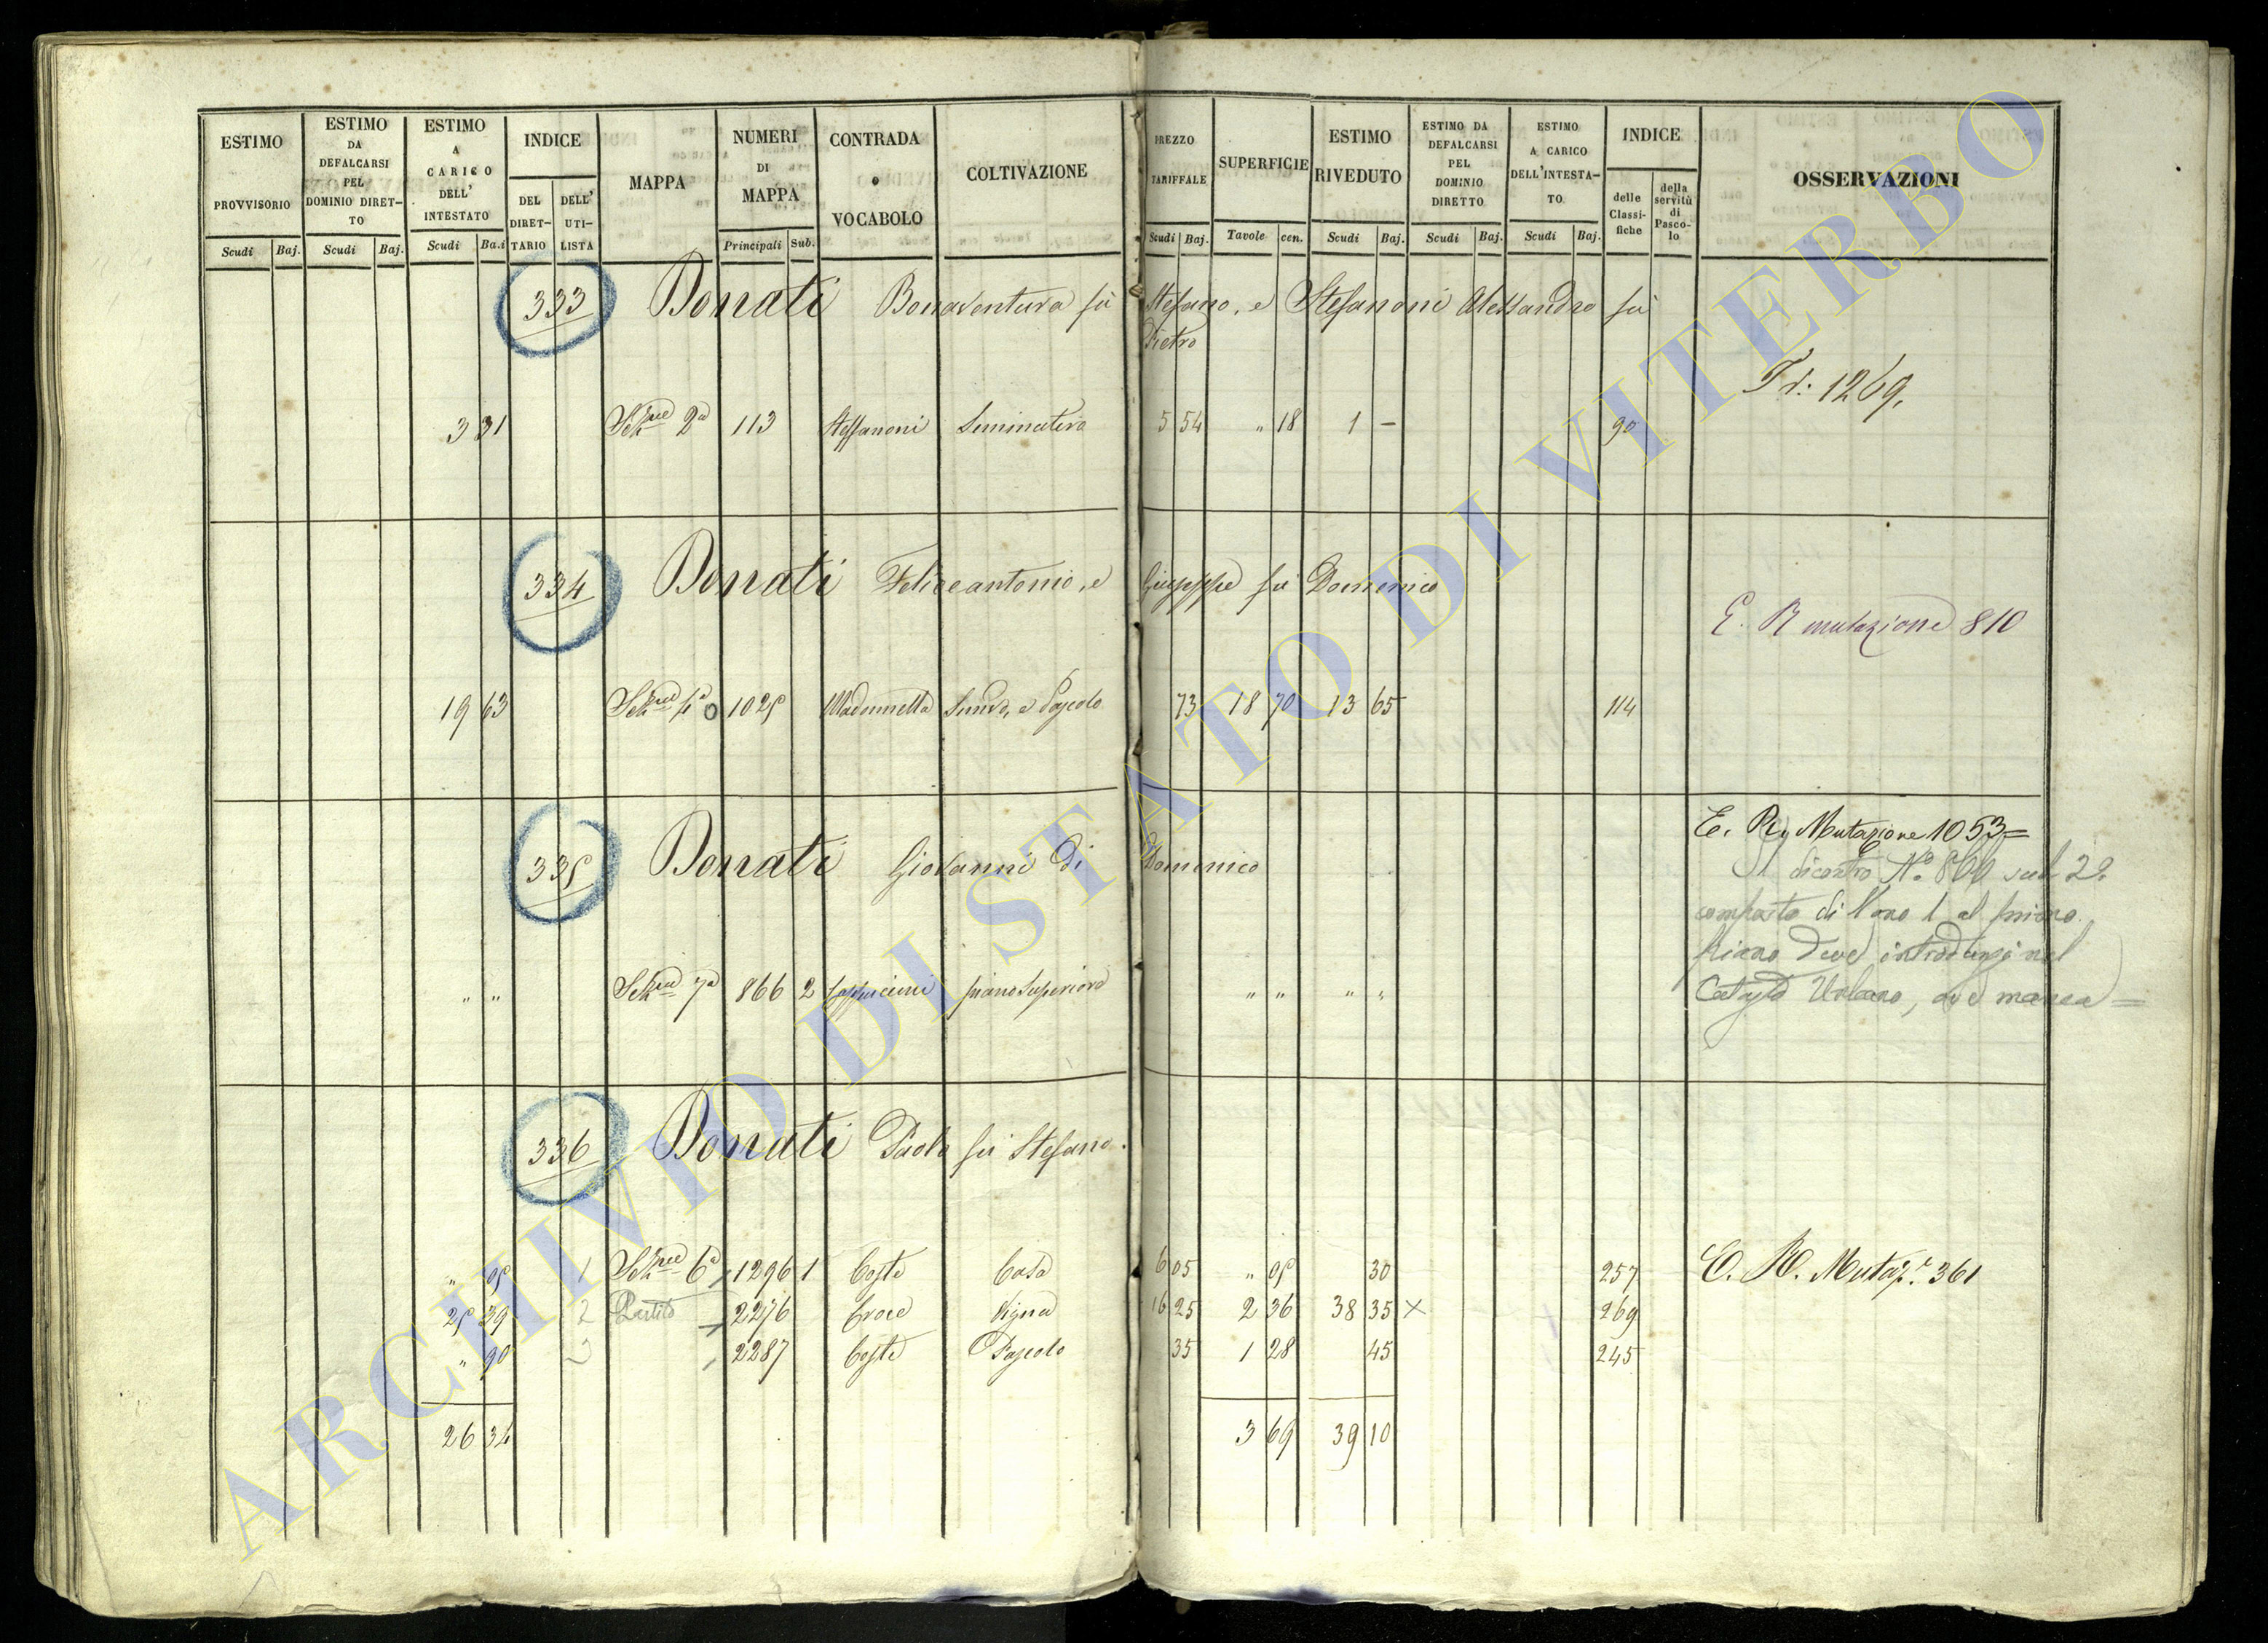 ESTIMO PROVVISORIO
ESTIMO DA DEFALCARSI PEL DOMINIO DIRET-TO
ESTIMO A CARICO DELL' INTESTATO
INDICE
DEL DIRET-TARIO
DELL' UTI-LISTA
MAPPA
NUMERI DI MAPPA
CONTRADA o VOCABOLO
COLTIVAZIONE
PREZZO TARIFFALE
SUPERFICIE
ESTIMO RIVEDUTO
ESTIMO DA DEFALCARSI PEL DOMINIO DIRETTO
ESTIMO A CARICO DELL'INTESTA-TO
INDICE
delle Classi-fiche
della servitù di Pasco-lo
OSSERVAZIONI
Scudi Baj. Scudi Baj. Scudi Ba.i Principali Sub. Scudi Baj. Tavole cen. Scudi Baj. Scudi Baj. Scudi Baj.
333 Donati Bonaventura fù Stefano, e Stefanoni Alessandro fù
Pietro
Tr: 1269.
3 31 Sezne 2a 113 Steffanoni Seminativo 5 54 " 18 1 - 90
334 Donati Feliceantonio, e Giuseppe fù Domenico
E. R mutazione 810
19 63 1025 Madonnella Semvo, e Pascolo 73 18 70 13 65 114
E. R. Mutazione 1053=
335 Donati Giovanni di Domenico
Il dicontro No 866 sub. 2.
composto di Vano 1 al primo
piano deve introdursi nel
" " Sezne 7a 866 2 Cappuccini piano Superiore " " " "
Catasto Urbano, ove manca=
336 Donati Paolo fù Stefano.
" 05 1 Sezne 6a 1296 1 Coste Casa 6 05 " 05 30 257 E. R. Mutaz.e 361
25 39 2 Partito 2276 Croce Vigna 16 25 2 36 38 35 × 269
" 90 3 2287 Coste Pascolo 35 1 28 45 245
26 34 3 69 39 10
ARCHIVIO DI STATO DI VITERBO